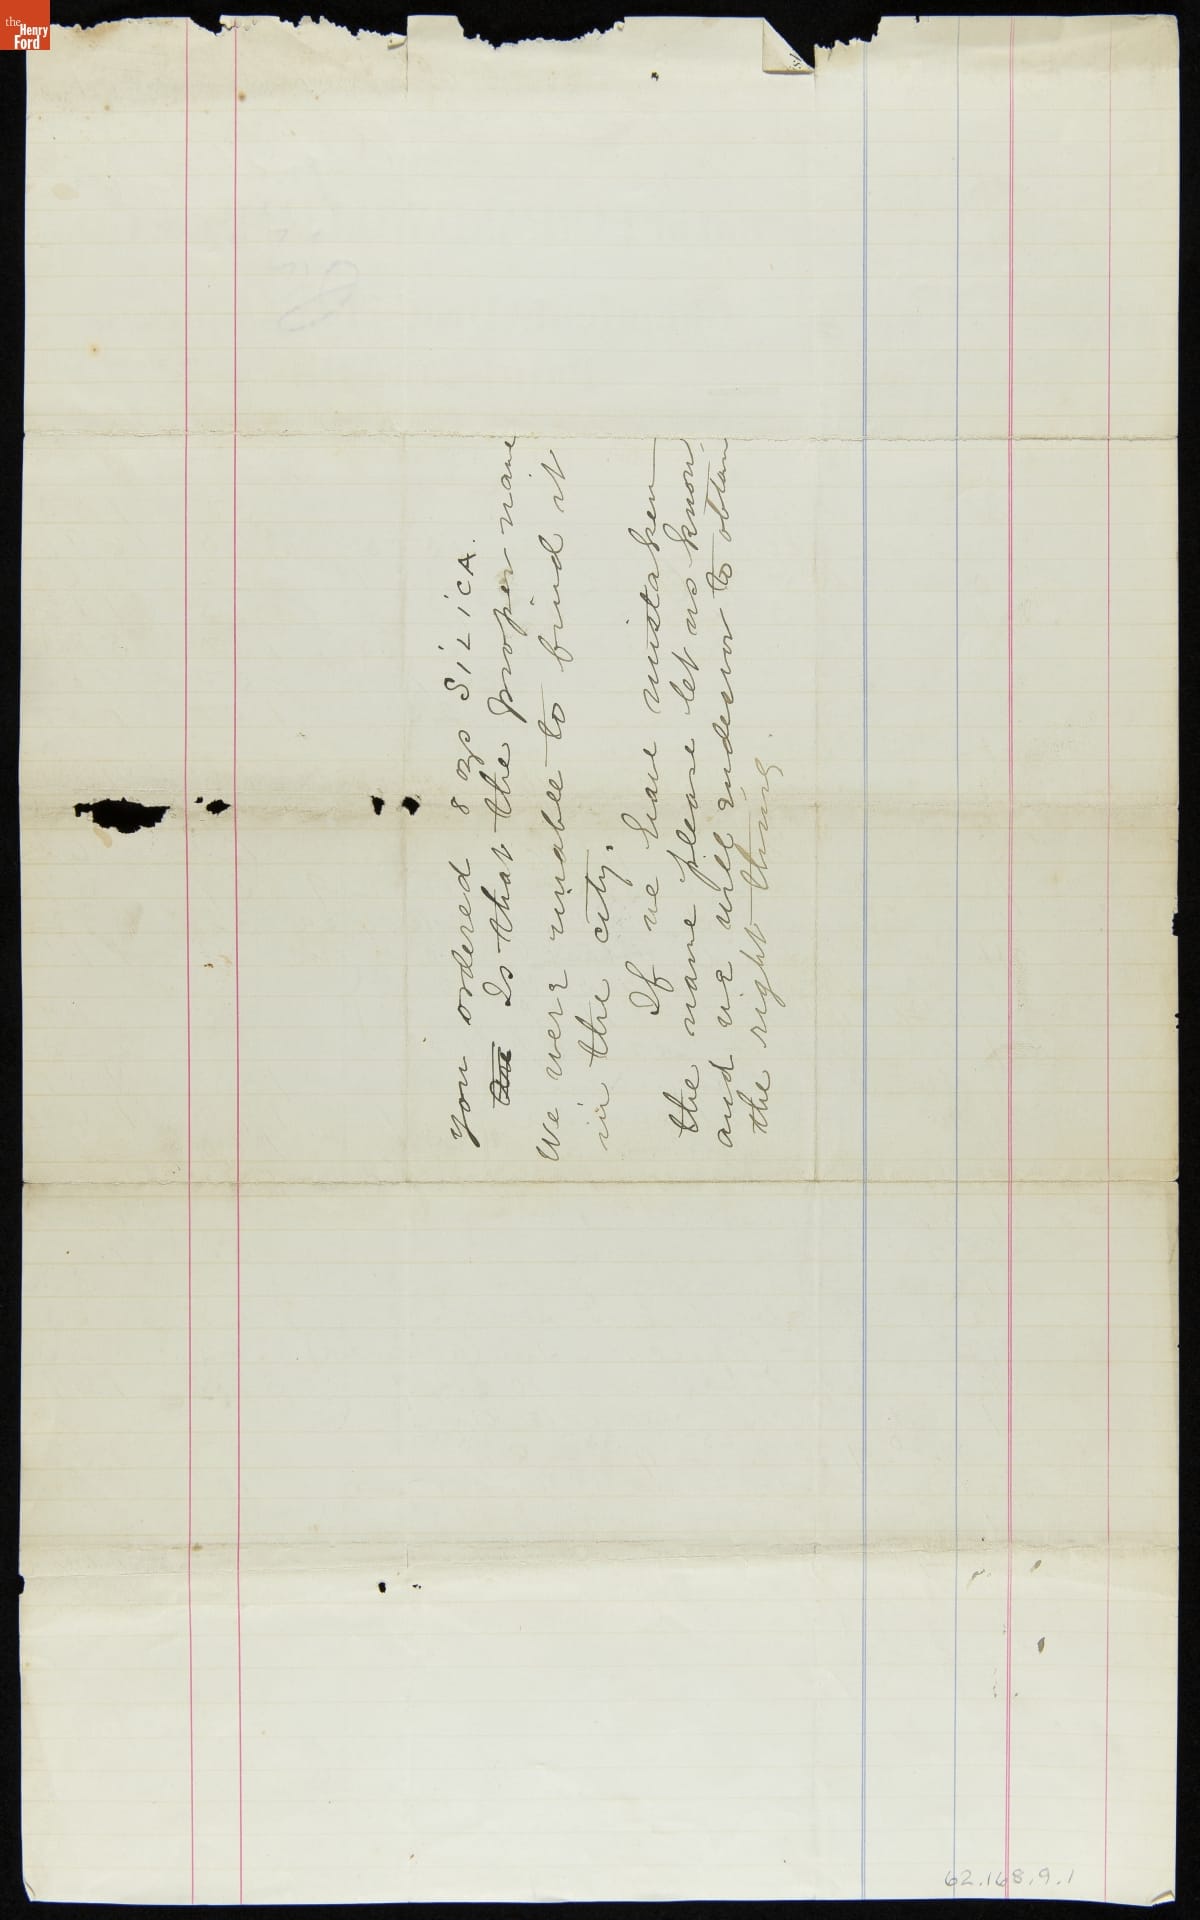 the
Henry
Ford
You ordered 8 ozs SiLiCA.
Is that the proper name
We were unable to find it
in the city.
If we have mistaken
the name please let us know.
and we will endevor to obtan
the right thing.
62.168.9.1